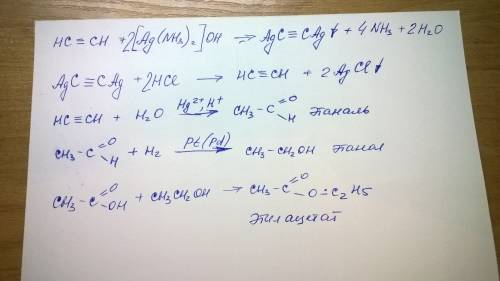 HC≡CH +2[Ag(NH₃)₂]OH → AgC≡CAg↓ + 4NH₃ + 2H₂O
AgC≡CAg + 2HCl → HC≡CH + 2AgCl↓
HC≡CH + H₂O Hg²⁺,H⁺ → CH₃-C=O H этаналь
CH₃-C=O H + H₂ Pt(Pd) → CH₃-CH₂OH этанол
CH₃-C=O OH + CH₃CH₂OH → CH₃-C=O O-C₂H₅
этилацетат